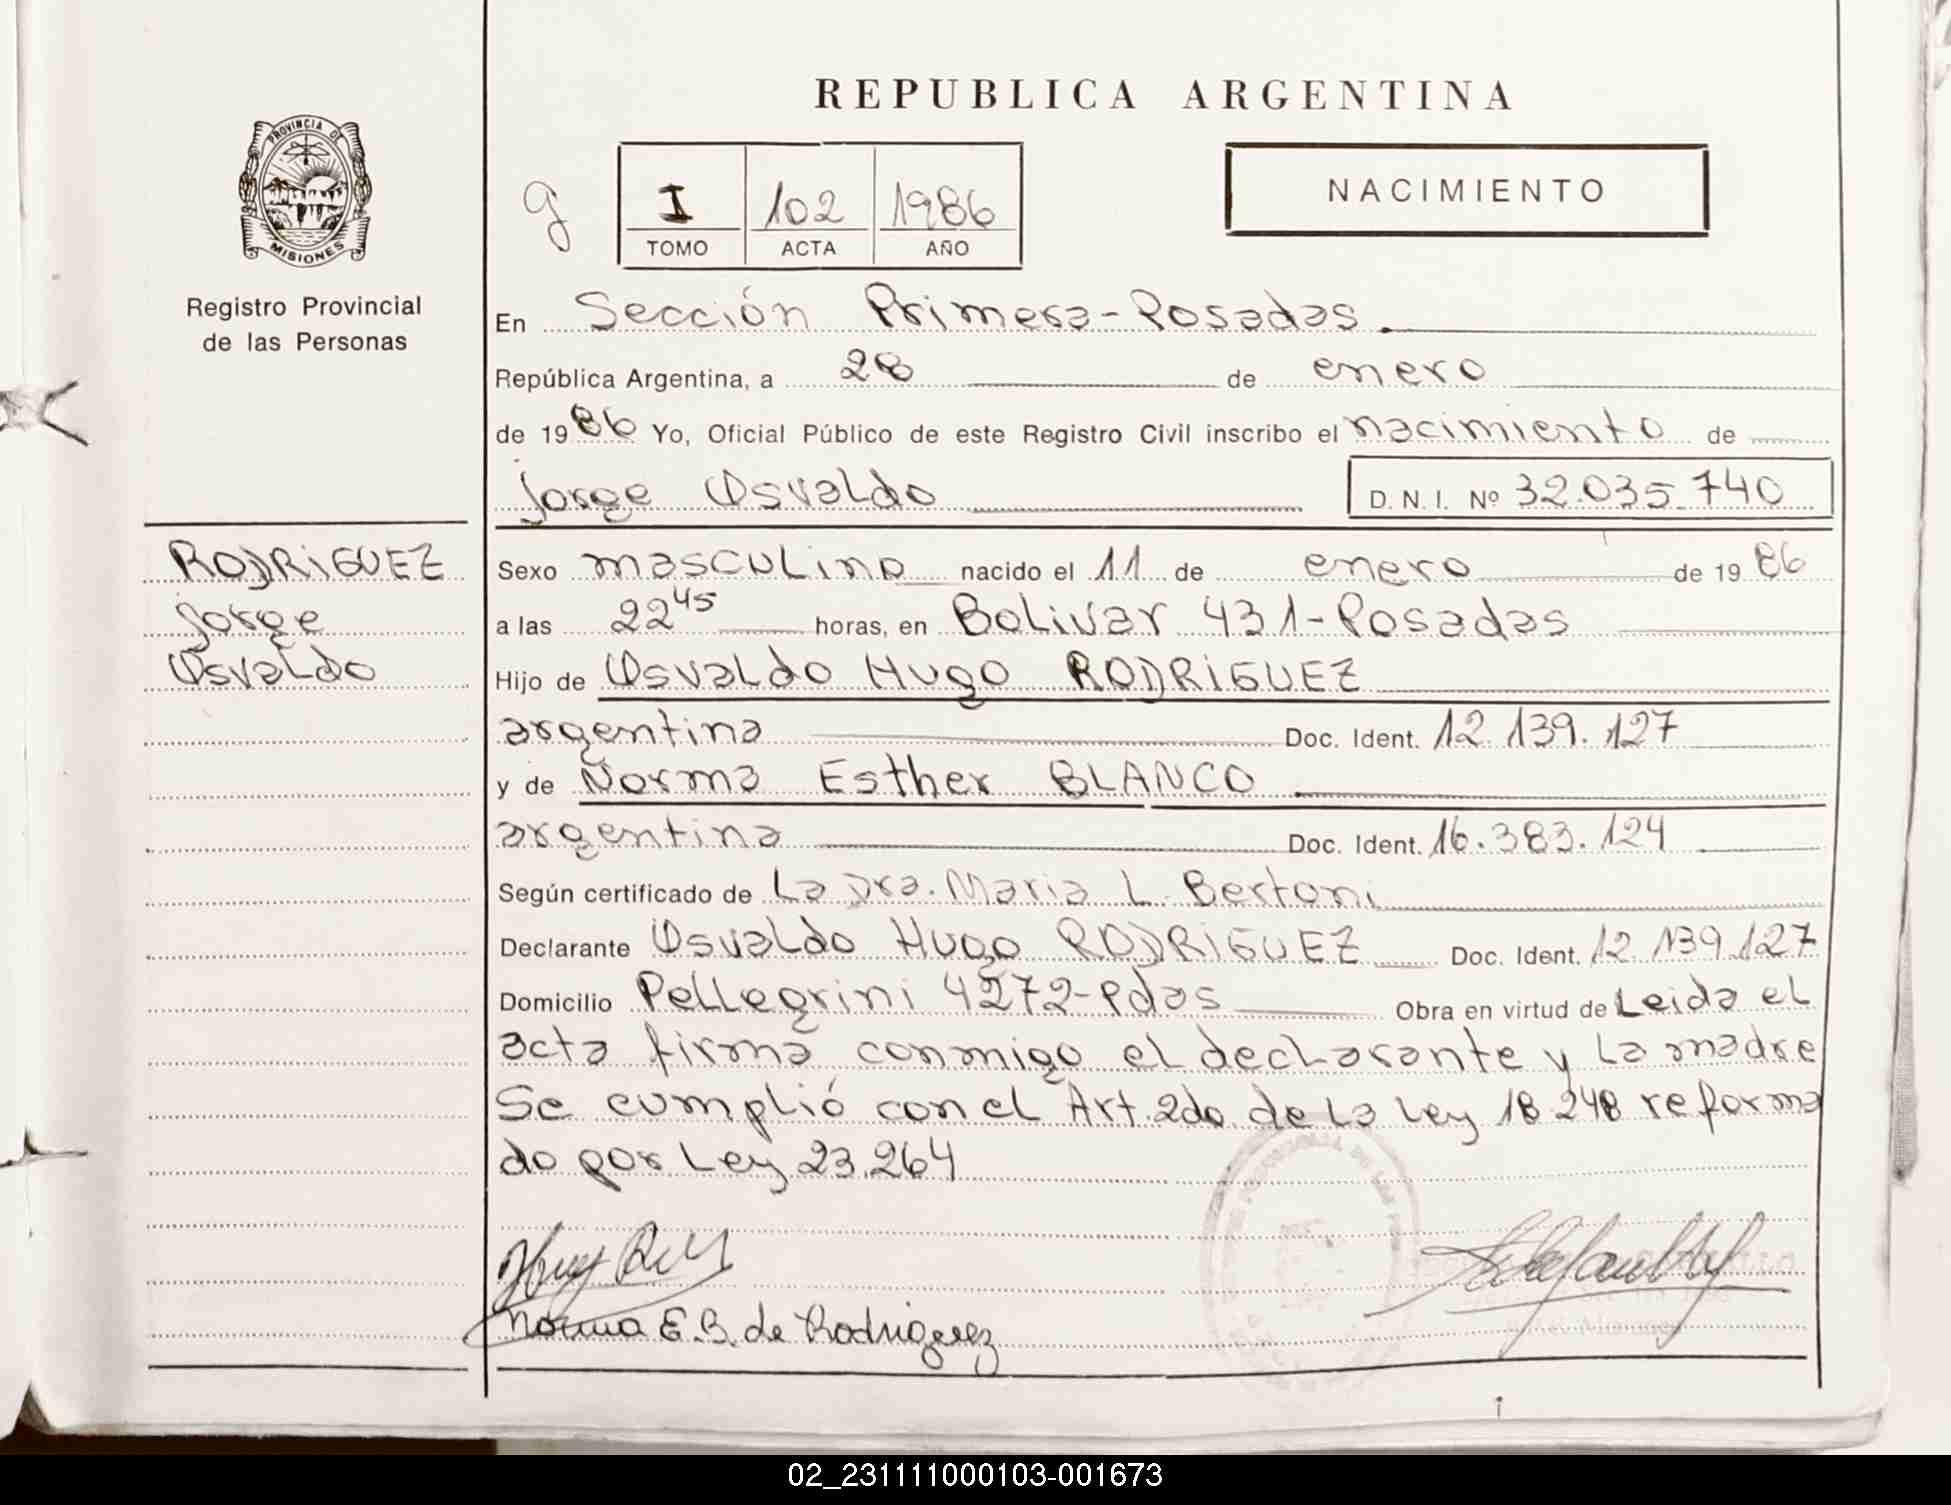 REPUBLICA ARGENTINA
PROVINCIA DE
MISIONES
Registro Provincial
de las Personas
g
I 102 1986
TOMO ACTA AÑO
NACIMIENTO
En Sección Primera-Posadas
República Argentina, a 28 de enero
de 1986 Yo, Oficial Público de este Registro Civil inscribo el nacimiento de
Jorge Osvaldo D. N. I. Nº 32.035.740
RODRIGUEZ
Jorge
Osvaldo
Sexo masculino nacido el 11 de enero de 1986
a las 22 45 horas, en Bolivar 431-Posadas
Hijo de Osvaldo Hugo RODRIGUEZ
argentina Doc. Ident. 12.139.127
y de Norma Esther BLANCO
argentina Doc. Ident. 16.383.124
Según certificado de La Dra. Maria L. Bertoni
Declarante Osvaldo Hugo RODRIGUEZ Doc. Ident. 12.139.127
Domicilio Pellegrini 4272-Pdas Obra en virtud de Leida el
acta firma conmigo el declarante y La madre
Se cumplió con el Art. 2do de La Ley 18.248 reforma
do por Ley 23.264
Norma E.B. de Rodriguez
02_231111000103-001673